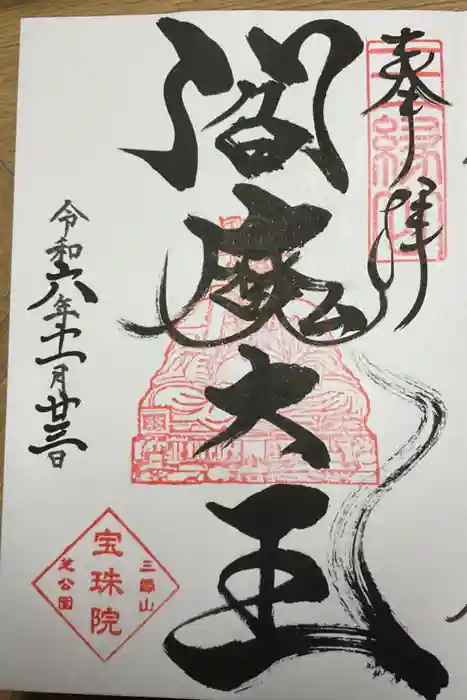 奉拝
三縁山
閻魔大王
令和六年十一月廿三日
三縁山
宝珠院
芝公園